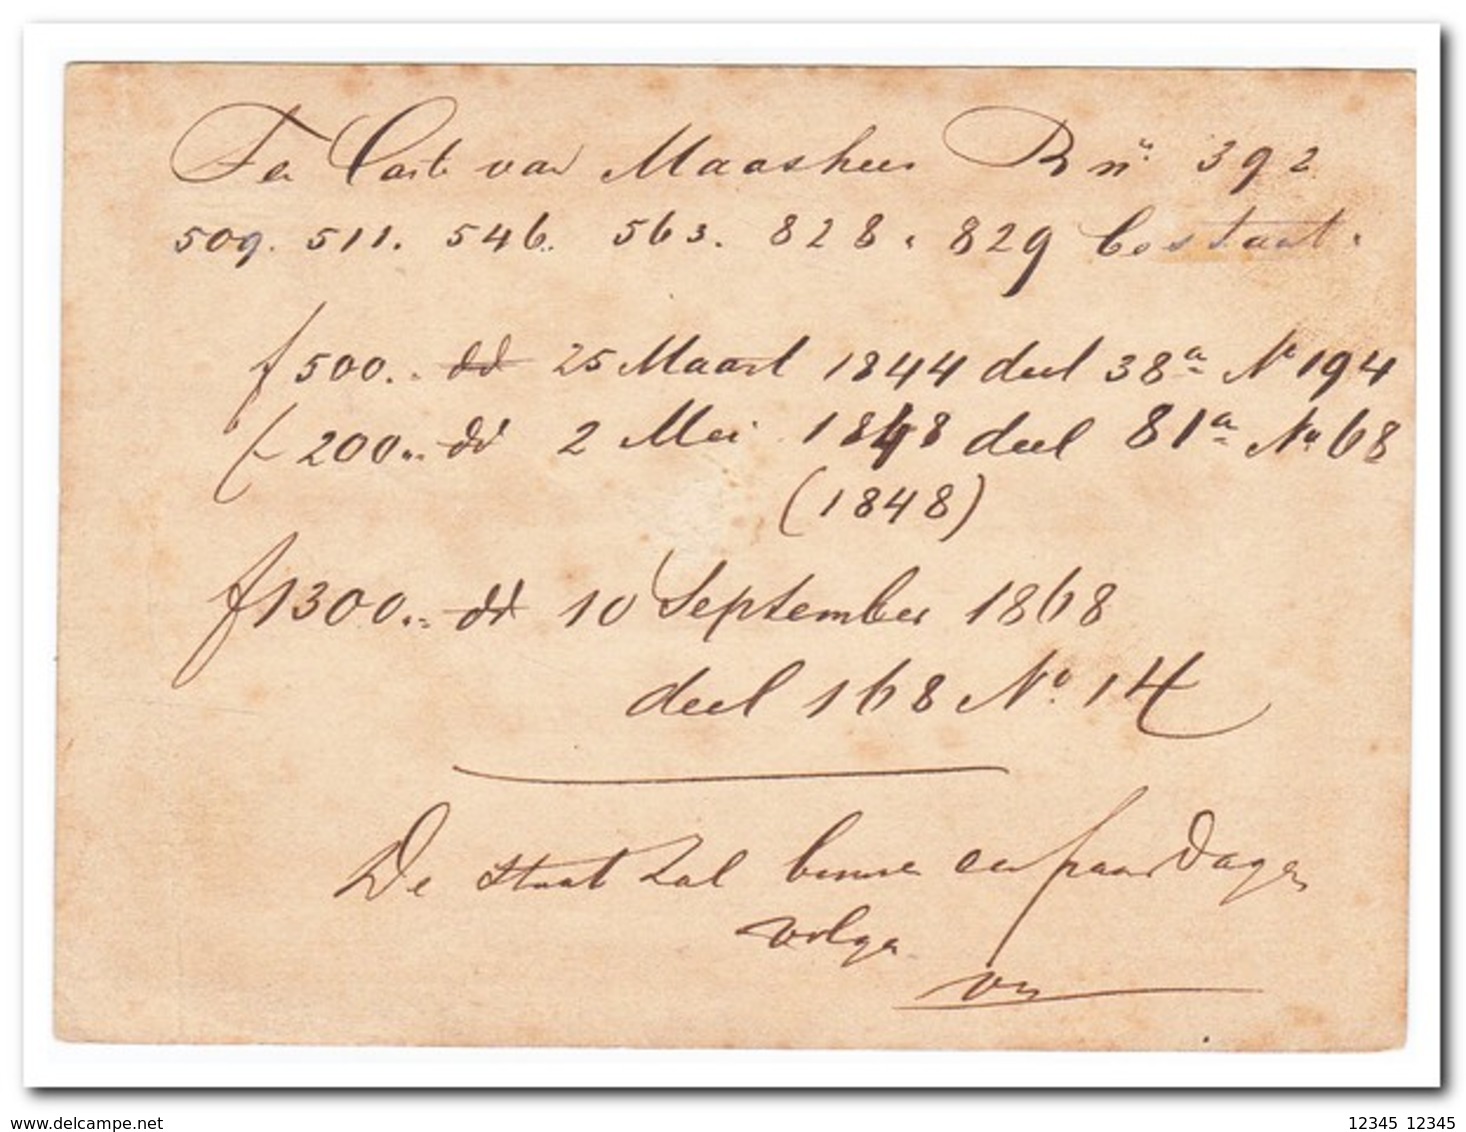 Ten Laste van Maashees B nº 392
509. 511. 546. 563. 828. 829 bestaat.
f 500.. dd 25 Maart 1844 deel 38a No 194
f 200.. dd 2 Mei 1848 deel 81a No 68
(1848)
f 1300.. dd 10 September 1868
deel 168 No. 14
De staat zal binnen een paar dagen
volgen
www.delcampe.net
12345 12345